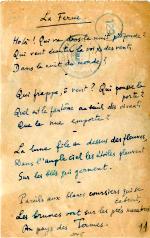 La Ferme.
Holà! Qui va dans la nuit profonde?
Qui vient dans la voix des vents
Dans la nuit du monde?
Qui frappe, ô vent? Qui pousse la
porte?
Quel est le fantôme autour des vivants
Que la nue emporte?
La lune file au dessus des fleuves,
Dans l'angle ciel les étoiles pleurent
Sur les blés qui germent.
Pareils aux blancs coursiers qui se
Les brumes vont sur les prés
Au pays des Termes.
11